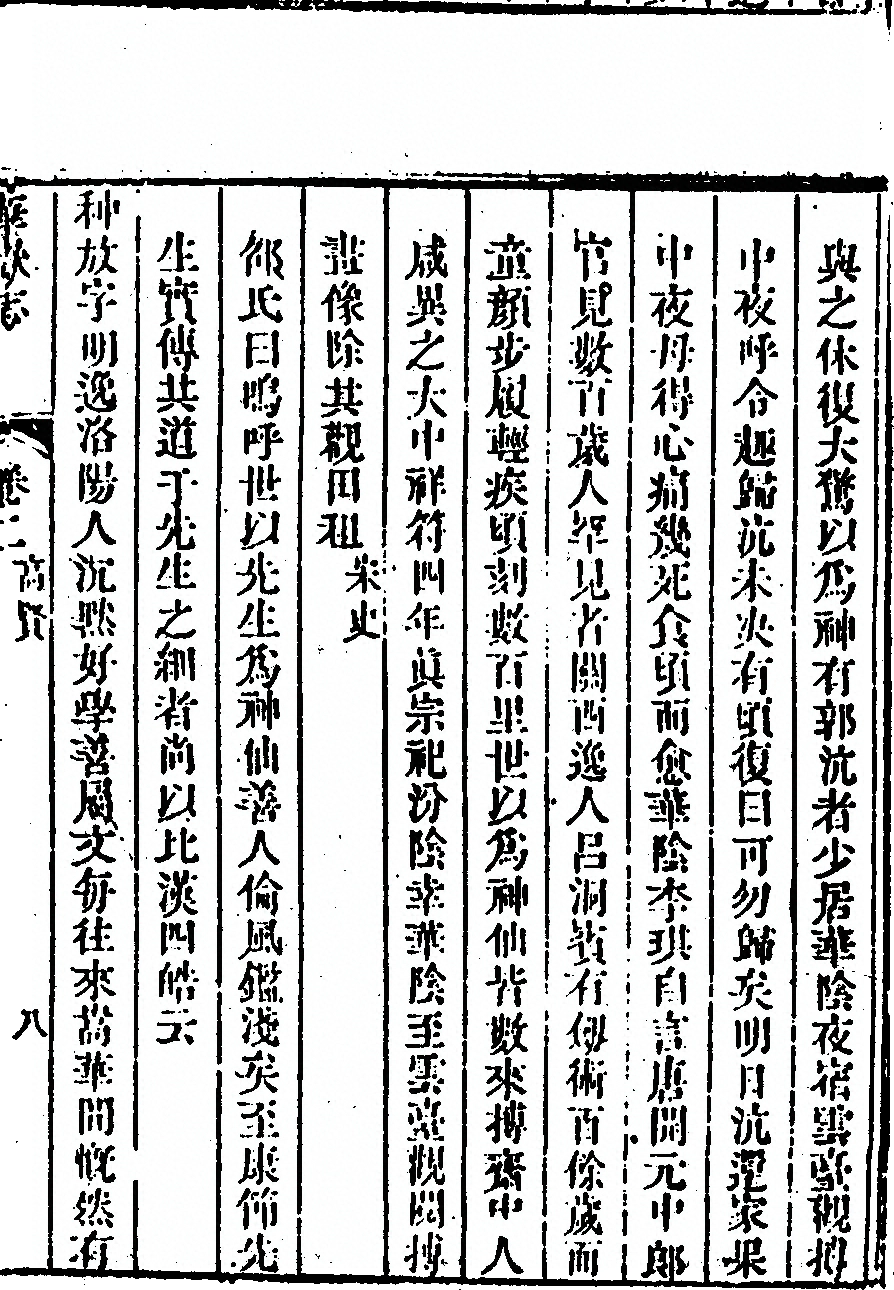 與之休復大驚以為神有郭沆者少居華陰夜宿雲臺觀摶
中夜呼令趣歸沆未決有頃復曰可勿歸矣明日沆還家果
中夜母得心痛幾死食頃而愈華陰李琪自言唐開元中郎
官見數百歲人罕見者關西逸人呂洞賓有劔術百餘歲而
童顏步履輕疾頃刻數百里世以為神仙皆數來摶齋中人
咸異之大中祥符四年真宗祀汾陰幸華陰至雲臺觀閱摶
畫像除其觀田租 宋史
邵氏曰嗚呼世以先生為神仙善人倫風鑑淺矣至康節先
生實傳其道于先生之細者尚以比漢四皓云
种放字明逸洛陽人沉默好學善屬文每往來嵩華間慨然有
華嶽志 卷二 高賢 八